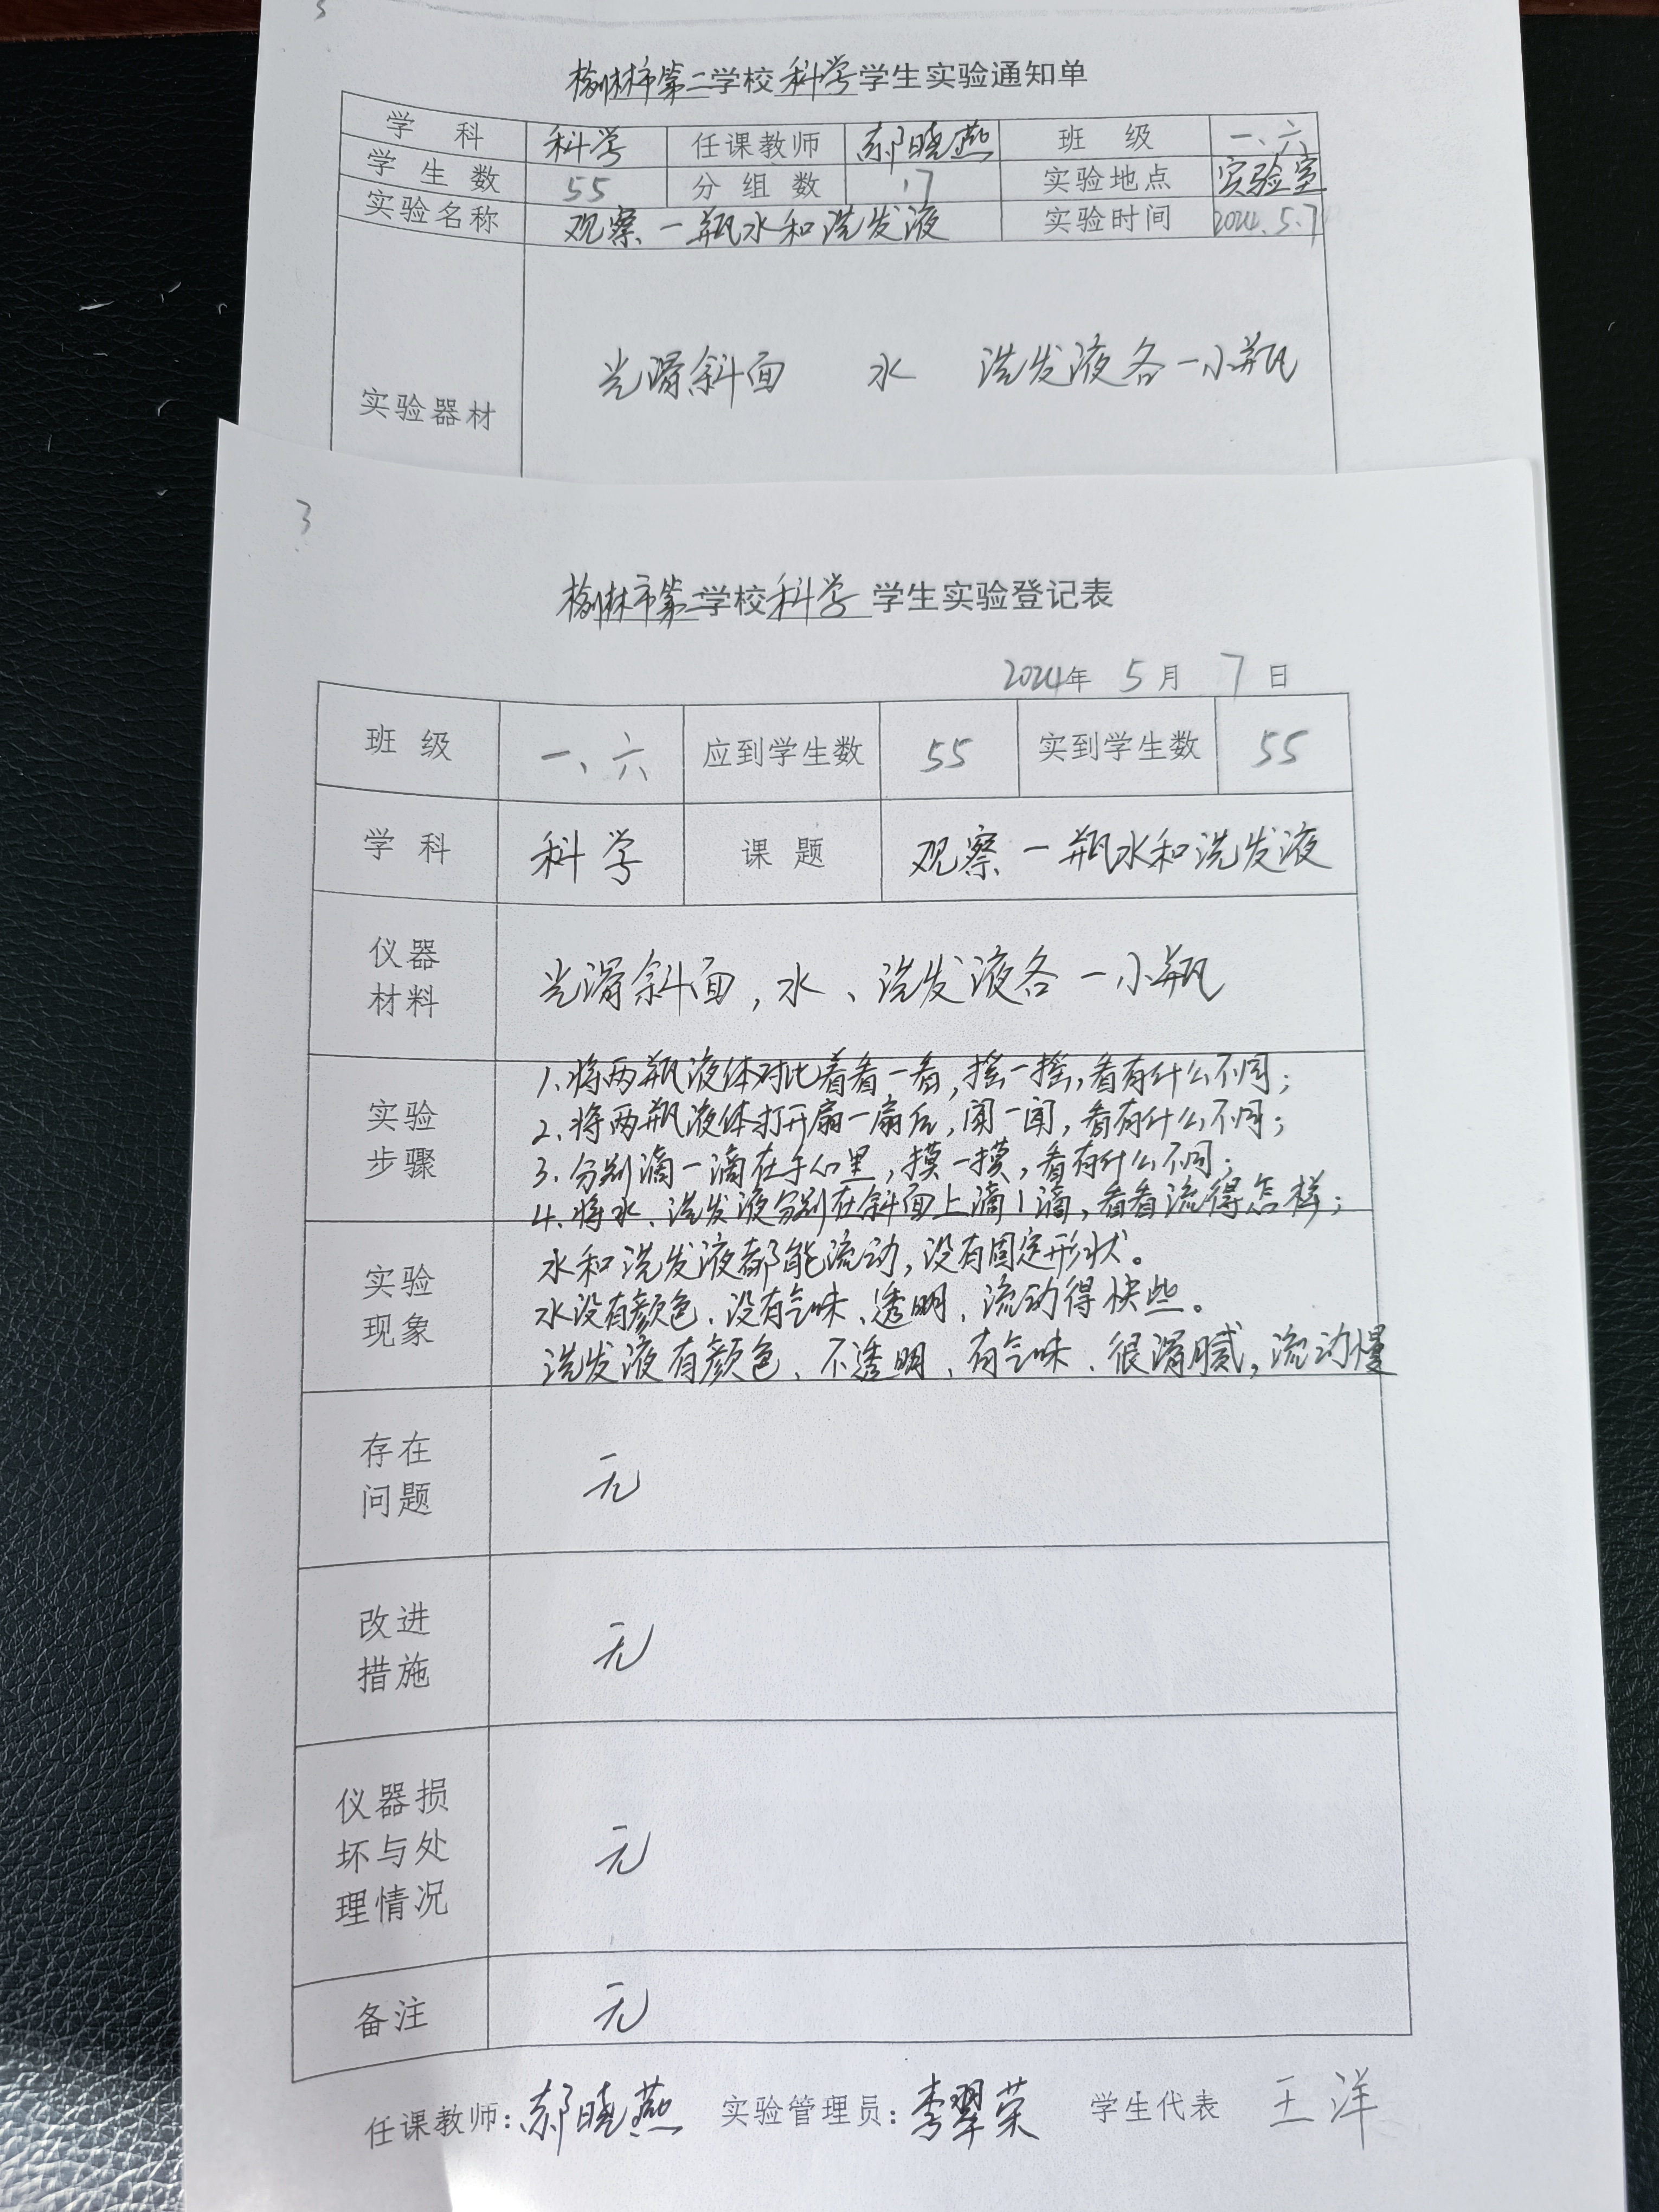 榆林市第二学校科学学生实验通知单
学科 科学 任课教师 郝晓燕 班级 一、六
学生数 55 分组数 17 实验地点 实验室
实验名称 观察一瓶水和洗发液 实验时间 2024.5.7
实验器材 光滑斜面 水 洗发液各一小瓶
3
榆林市第二学校科学学生实验登记表
2024年 5月 7日
班级 一、六 应到学生数 55 实到学生数 55
学科 科学 课题 观察一瓶水和洗发液
仪器
材料
光滑斜面,水、洗发液各一小瓶
实验
步骤
1、将两瓶液体对比着看一看,摇一摇,看有什么不同;
2、将两瓶液体打开扇一扇后,闻一闻,看有什么不同;
3、分别滴一滴在手心里,摸一摸,看有什么不同;
4、将水、洗发液分别在斜面上滴1滴,看看流得怎样;
实验
现象
水和洗发液都能流动,没有固定形状。
水没有颜色、没有气味、透明、流动得快些。
洗发液有颜色、不透明、有气味、很滑腻,流动慢
存在
问题
无
改进
措施
无
仪器损
坏与处
理情况
无
备注 无
任课教师:郝晓燕 实验管理员:李翠荣 学生代表 王洋